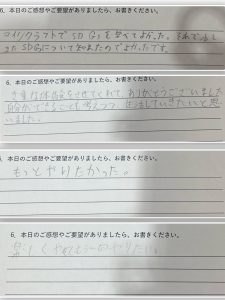 6．本日のご感想やご要望がありましたら、お書きください。
マインクラフトでSDGsを学べてよかった。それで少し
SDGsについて知れたのでよかたです。
6．本日のご感想やご要望がありましたら、お書きください。
貴重な体験をさせてくれて、ありがとうございました
自分ができることを考えつつ 生活していきたいと思
いました。
6．本日のご感想やご要望がありましたら、お書きください。
もっとやりたかった。
6．本日のご感想やご要望がありましたら、お書きください。
楽しく
やりたい。